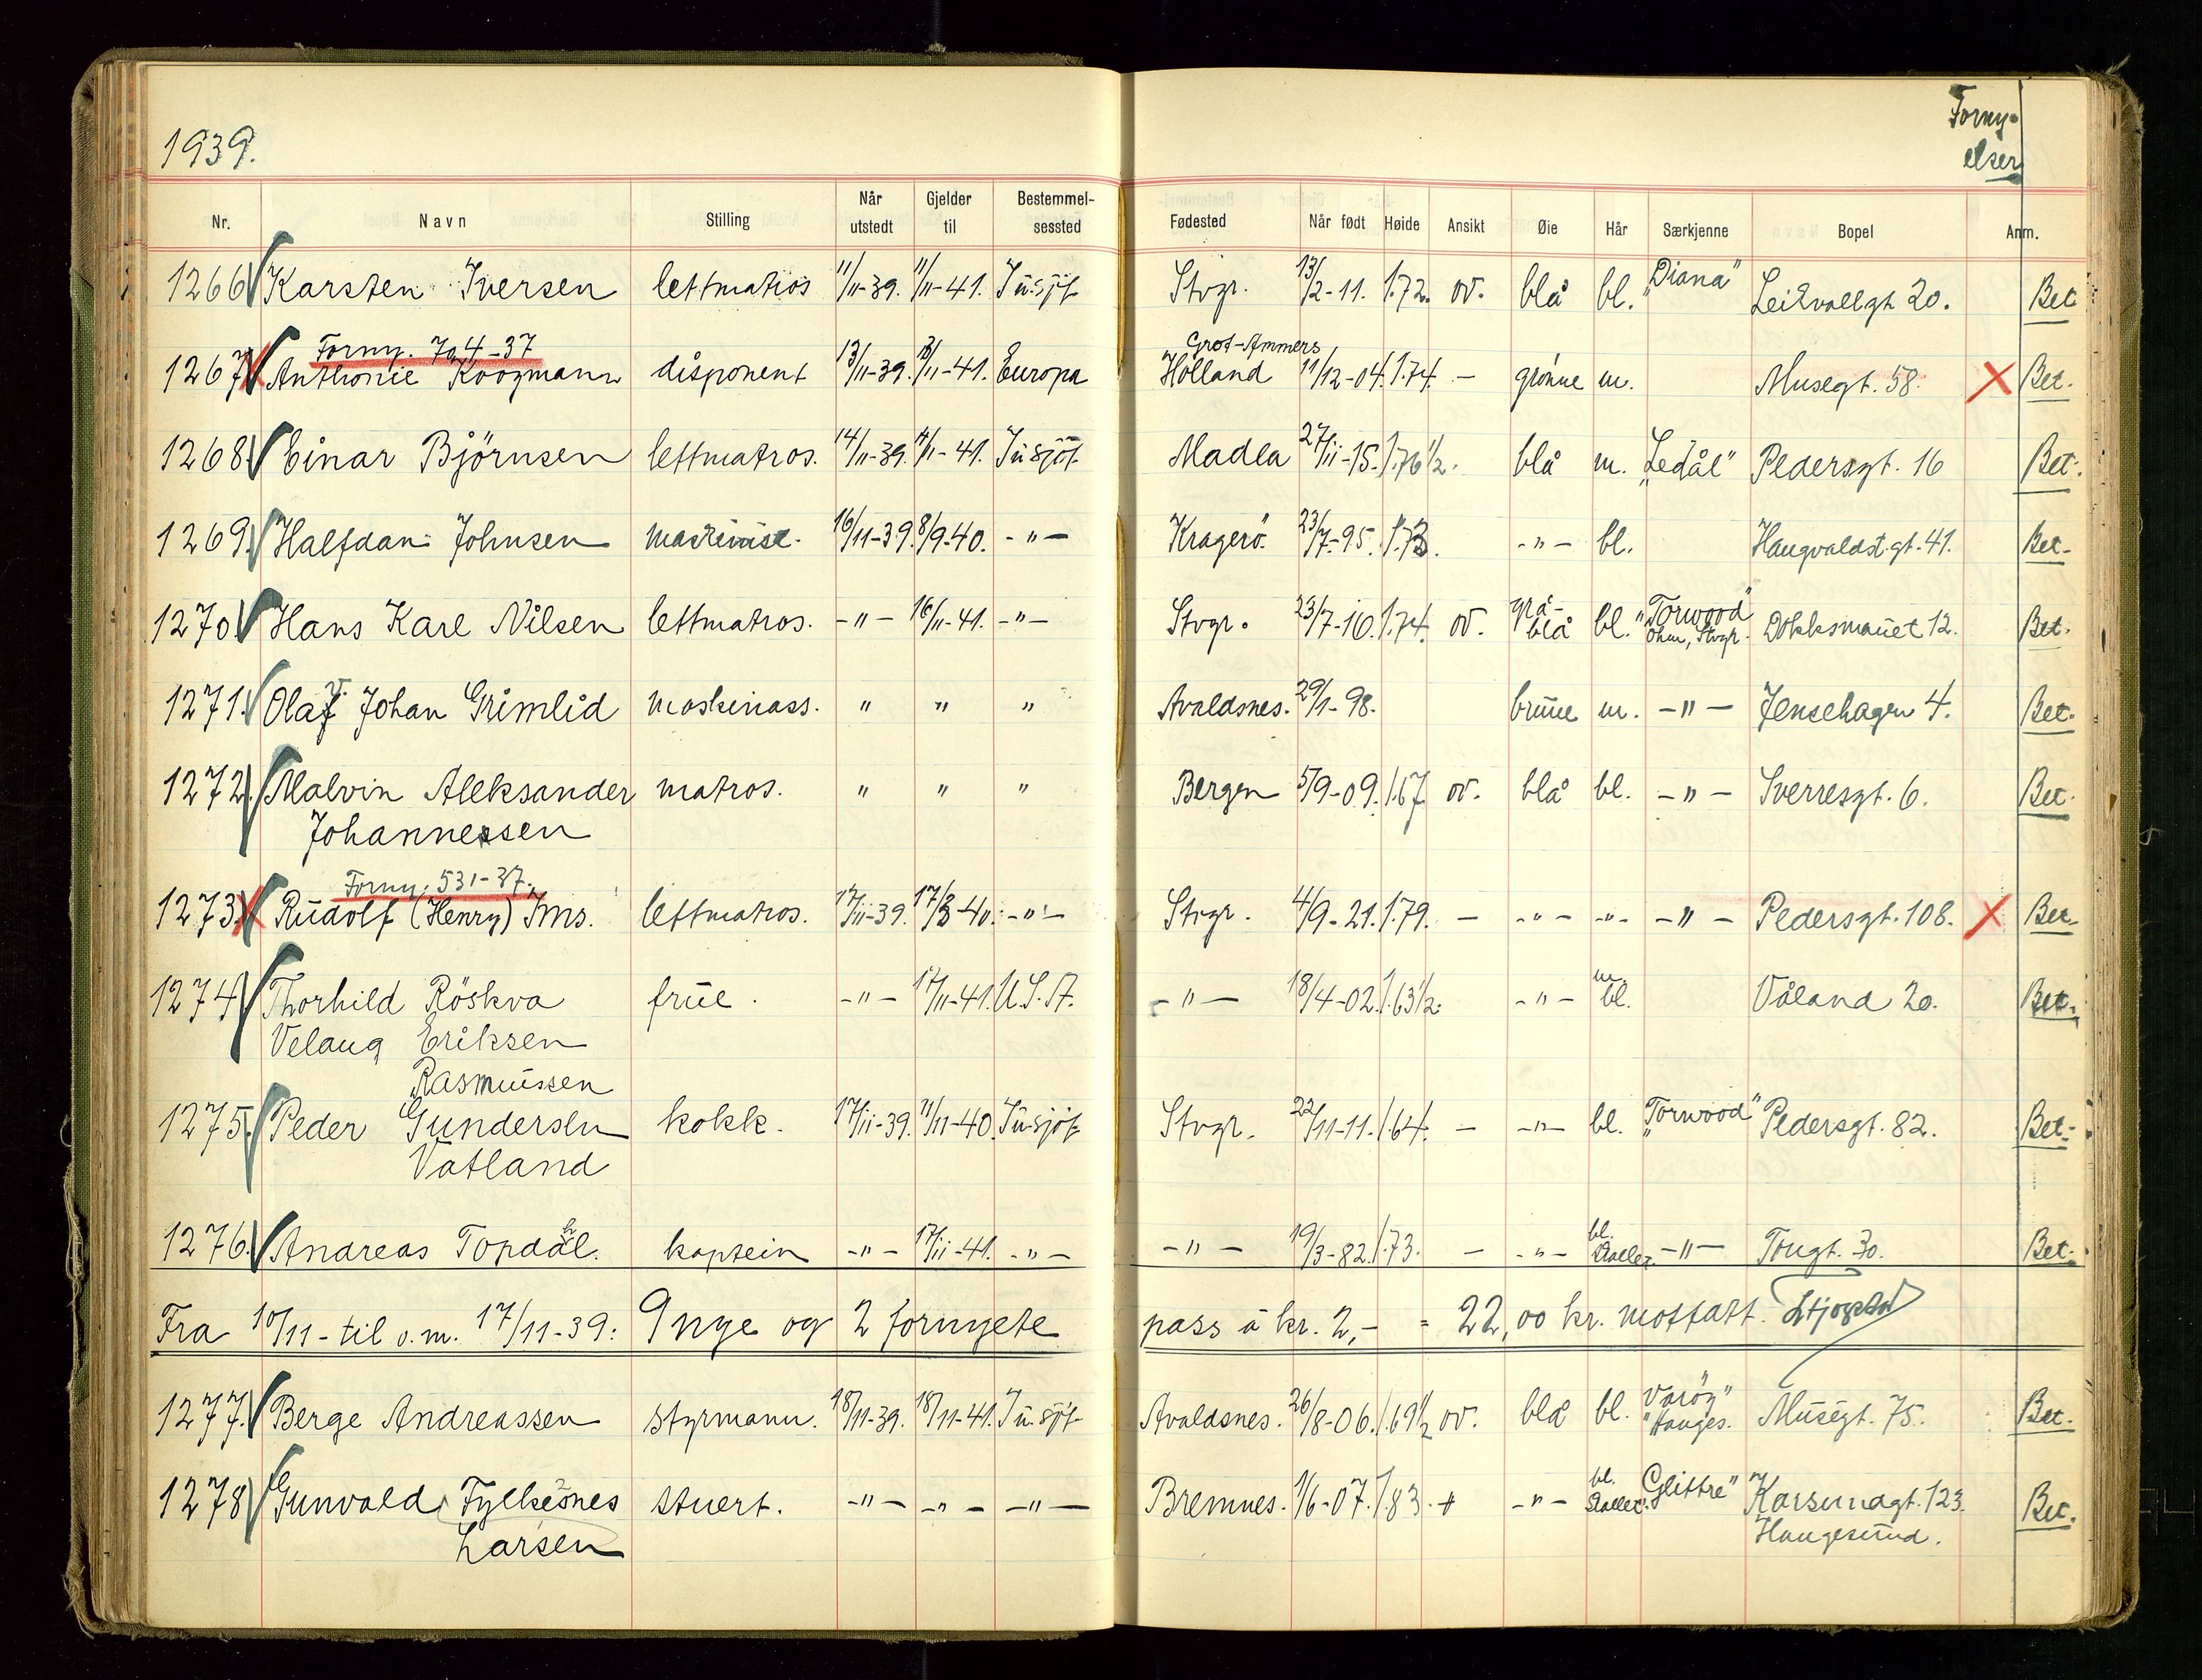 1939.
Forny-
elser
Nr. Navn Stilling Når utstedt Gjelder til Bestemmel-sessted Fødested Når født Høide Ansikt Øie Hår Særkjenne Bopel Anm.
1266 Karsten Iversen lettmatros 11/11-39. 11/11-41. Stvgr. 13/2-11. 1.72. ov. blå bl. "Diana" 20. Bet
Forny. 704-37 Grot-Ammers
1267 Anthonie Koozmann disponent 13/11-39. 13/11-41. Europa Holland 11/12-04. 1.74. — grønne m. Musegt. 58. X Bet.
1268 Einar Björnsen lettmatros. 14/11-39. Madla 27/11-15. 1.76 1/2. blå m. "Ledål" Pedersgt. 16 Bet.
1269. Halfdan Johnsen maskinist. 16/11-39. 8/9-40. -"- Kragerö. 23/7-95. 1.73. -"- bl. Haugvaldst.gt. 41. Bet.
1270. Hans Karl Nilsen lettmatros. -"- 16/11-41. -"- Stvgr. 23/7-16. 1.74. ov. grå-blå bl. "Torwood" Stvgr. Dokksmauet 12. Bet.
1271. Olaf Johan Grimlid maskinass. " " " Avaldsnes. 29/1-98. brune m. -"- Jensehagen 4. Bet.
1272. Malvin Aleksander matros. " " " Bergen 5/9-09. 1.67 ov. blå bl. -"- Sverresgt. 6. Bet.
Johannessen
Forny. 531-37.
1273 Rudolf (Henry) Ims. lettmatros. 17/11-39. 17/8-40. -"- Stvgr. 4/9-21. 1.79. — -"- -"- -"- Pedersgt. 108. X Bet
1274 Thorhild Röskva frue. -"- 17/11-41. U.S.A. -"- 18/4-02. 1.63 1/2. -"- m bl. Våland 20. Bet.
Velaug Eriksen
Rasmussen
1275. Peder Gundersen kokk. 17/11-39. 11/11-40. Stvgr. 22/11-11. 1.64. — -"- bl. "Torwood" Pedersgt. 82. Bet.
Vatland
1276. Andreas Topdal. kaptein -"- 17/11-41. -"- -"- 19/3-82. 1.73. — -"- bl. -"- Tougt. 30. Bet.
Fra 10/11- til o.m. 17/11-39: 9 nye og 2 fornyete pass à kr. 2,- = 22,00 kr. mottatt.
1277. Berge Andreassen styrmann. 18/11-39. 18/11-41. Avaldsnes. 26/8-06. 1.69 1/2 ov. blå bl. "Varöy" Hauges. Musegt. 75. Bet.
1278 Gunvald Fylkesnes stuert. -"- -"- -"- Bremnes. 1/6-07. 1.83. -"- bl. "Glittre" Karsundgt. 123. Bet.
Larsen Haugesund.